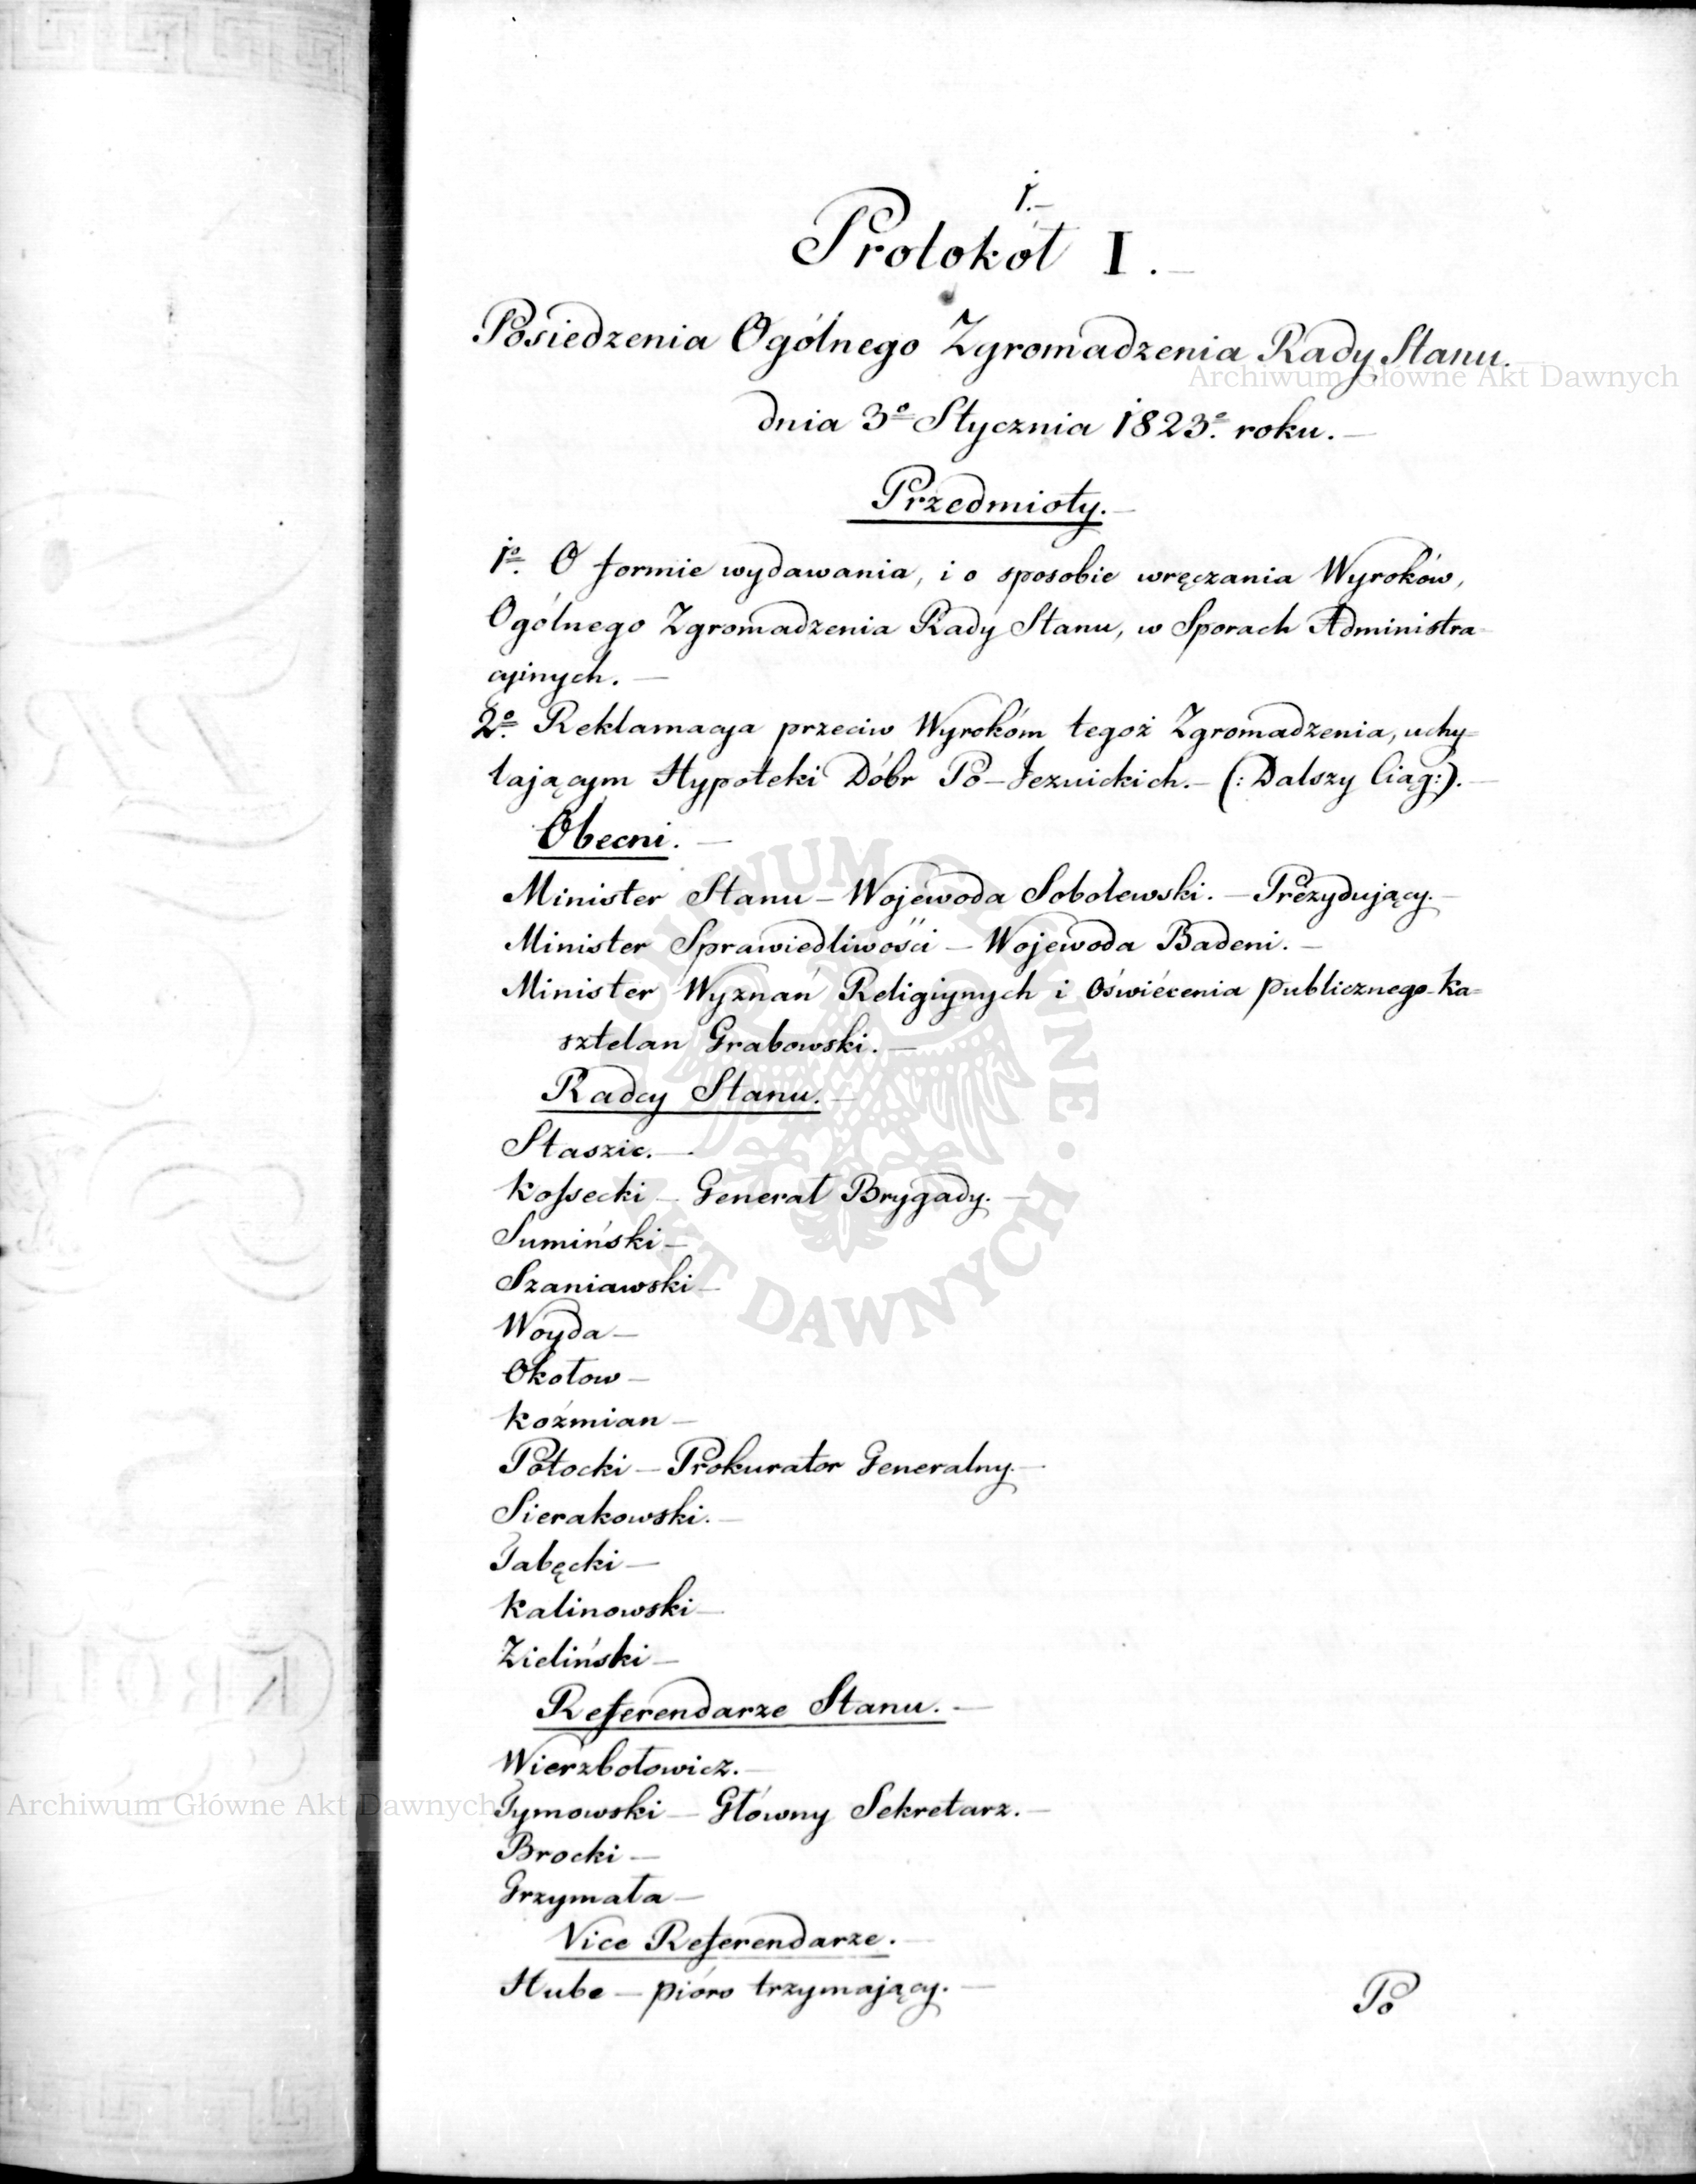 1.–
Protokół I.–
Posiedzenia Ogólnego Zgromadzenia Rady Stanu.
Archiwum Główne Akt Dawnych
dnia 3º Stycznia 1823º. roku.–
Przedmioty.–
1º. O formie wydawania, i o sposobie wręczania Wyroków,
Ogólnego Zgromadzenia Rady Stanu, w Sporach Administra-
cyinych.–
2º. Reklamacya przeciw Wyrokóm tegoż Zgromadzenia, uchy=
lającym Hypoteki Dóbr Po-Jezuickich.– (: Dalszy Ciąg:).–
Obecni.–
Minister Stanu – Wojewoda Sobolewski. – Prezydujący.–
Minister Sprawiedliwości – Wojewoda Badeni.–
Minister Wyznań Religiynych i Oświécenia publicznego-Ka=
sztelan Grabowski.–
Radcy Stanu.–
Staszic.–
Kossecki – Generał Brygady.–
Sumiński–
Szaniawski–
Woyda–
Okołow–
Koźmian–
Potocki – Prokurator Generalny.–
Sierakowski.–
Tabęcki–
Kalinowski–
Zieliński–
Referendarze Stanu.–
Wierzbołowicz.–
Archiwum Główne Akt Dawnych
Tymowski – Główny Sekretarz.–
Brocki–
Grzymała–
Vice Referendarze.–
Hube – pióro trzymający.–
Po
ARCHIWUM GŁÓWNE · AKT DAWNYCH ·